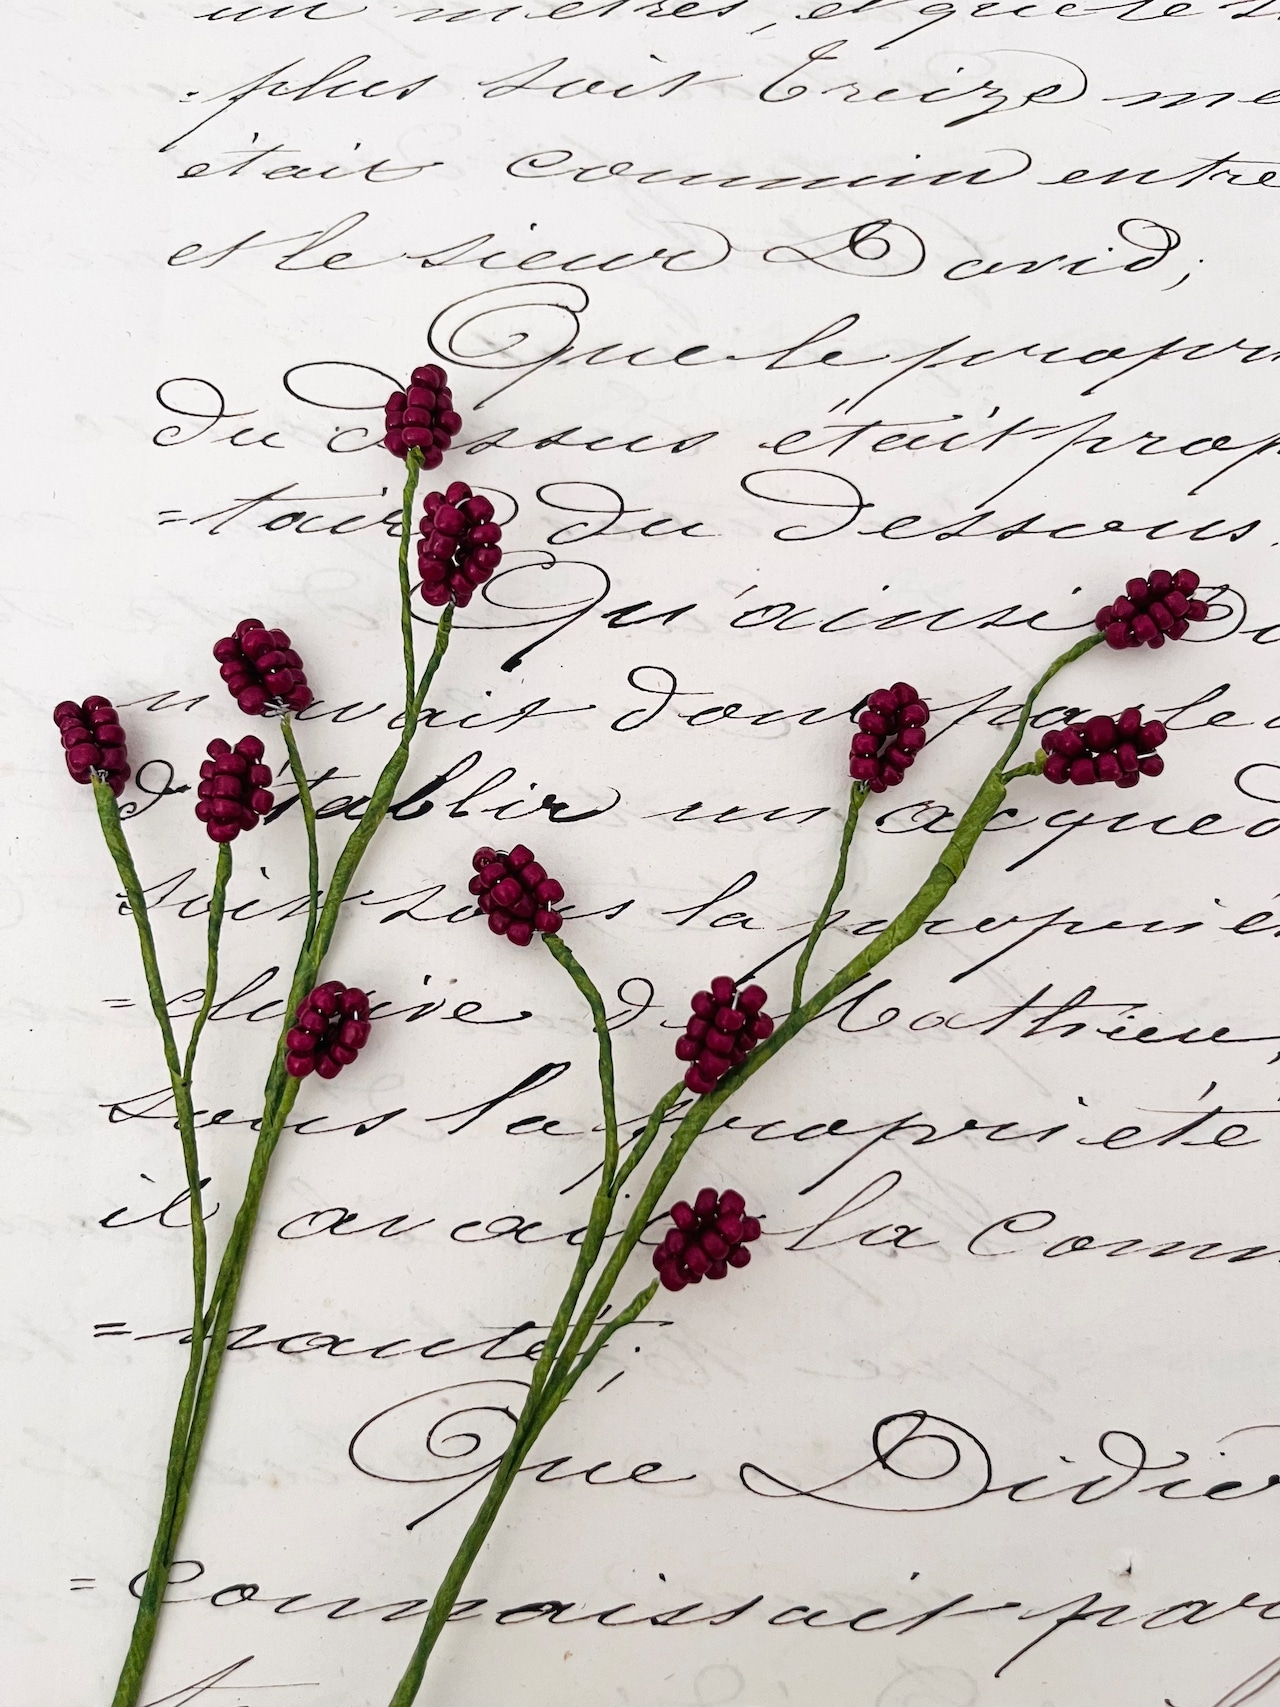 un mètres, et que le
=plus soit treize me
était commun entre
et le sieur David;
Que le propri
du dessus était prop
=taire du dessous.
Qu'ainsi
n'avait donc pas le
d'établir un acqued
soit sous la proprié
=clusive de Mathieu,
sous la propriété
il avait la comm
=nauté;
Que Didier
=connaissait par